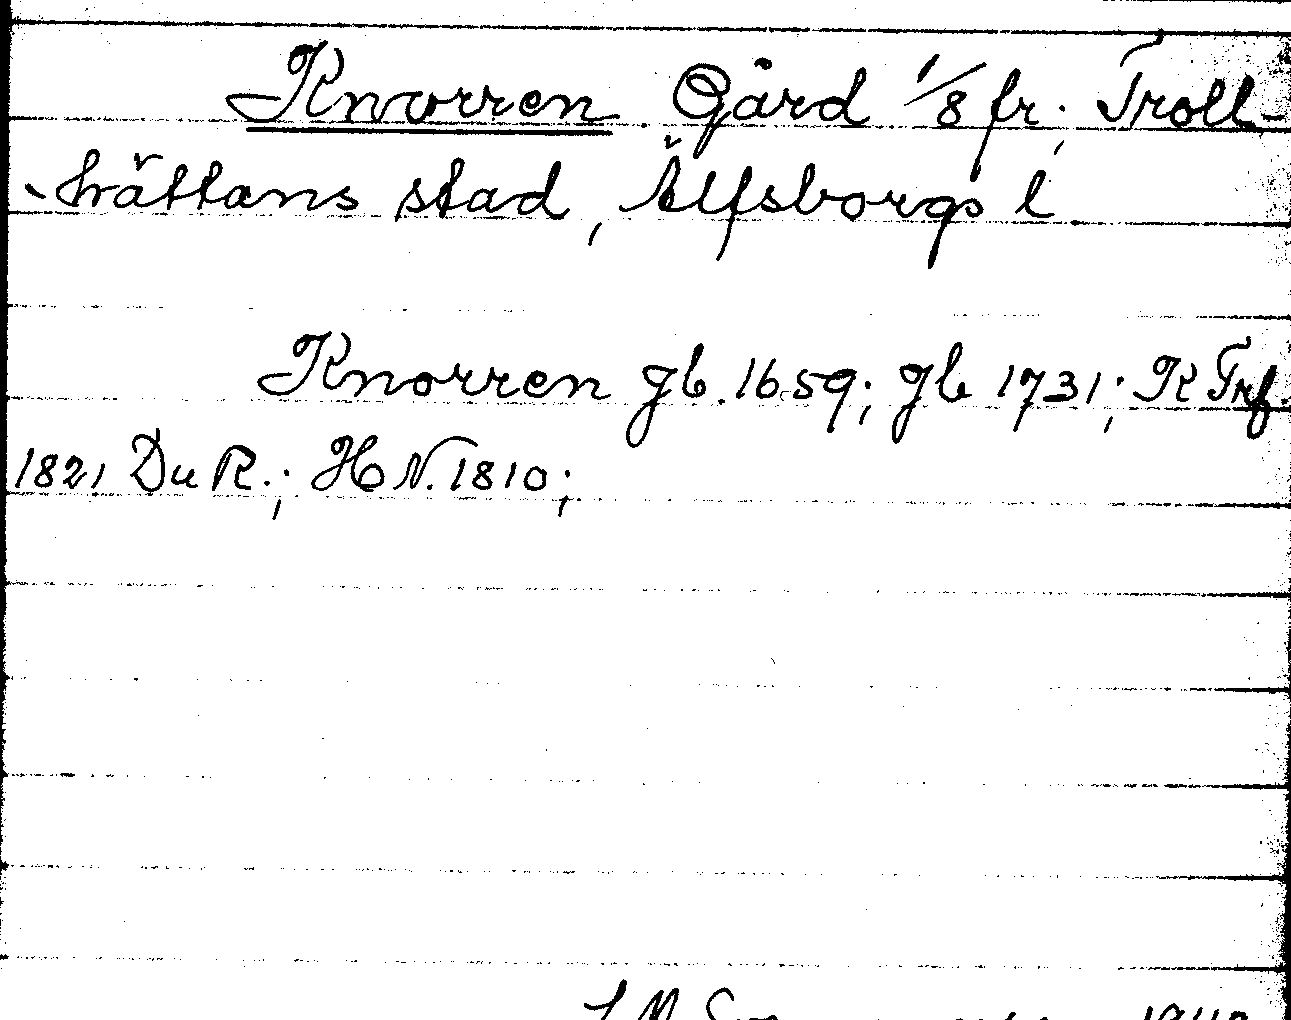 Knorren Gård 1/8 fr. Troll-
hättans stad, Älfsborgs l
Knorren gb. 1659; gb 1731; K Trf.
1821 Du R.; HN. 1810;